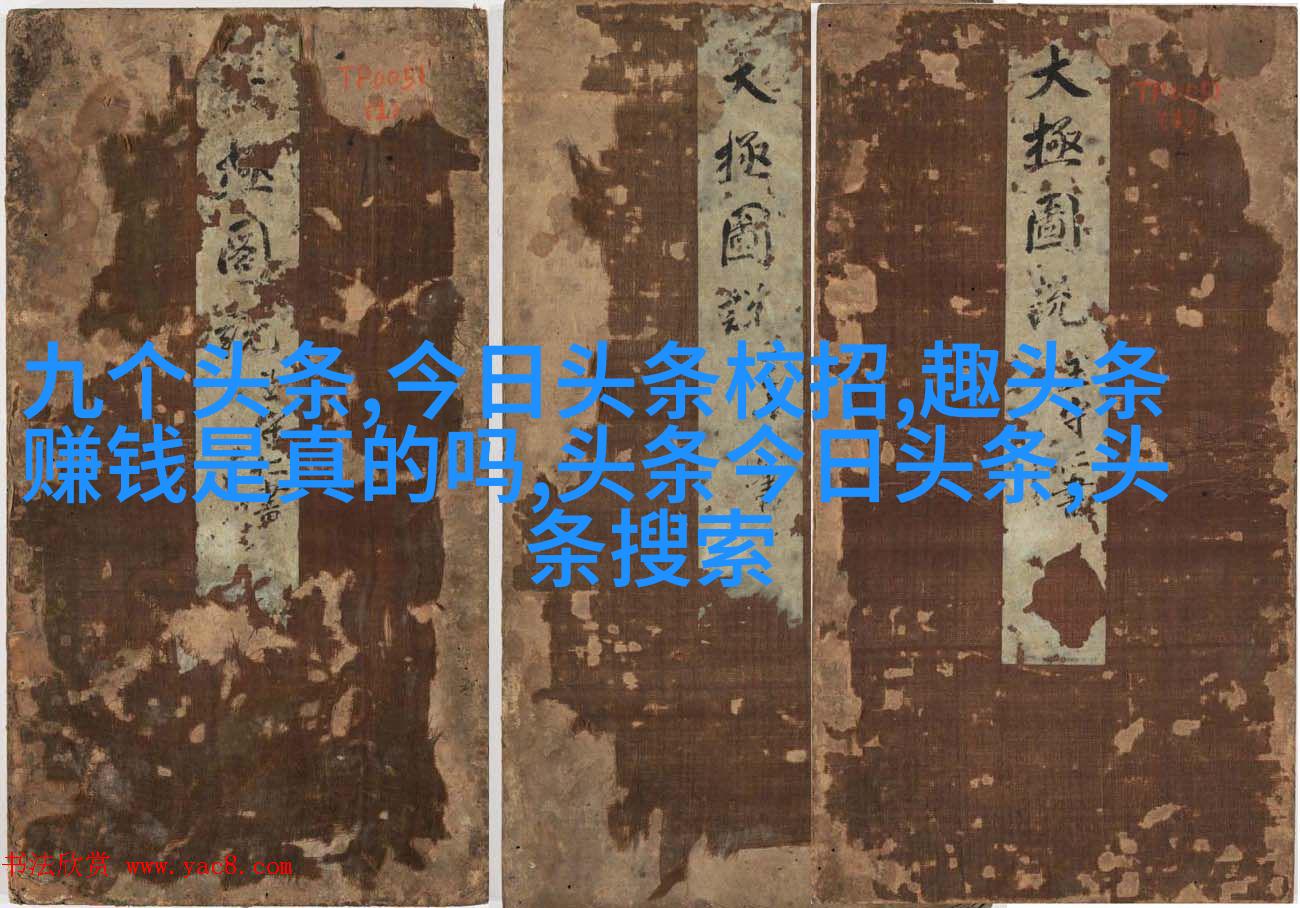 極圖說
TP0051
(1)
大極圖說
大極圖说
九个头条,今日头条校招,趣头条
赚钱是真的吗,头条今日头条,头
条搜索
书法欣赏 www.yac8.com